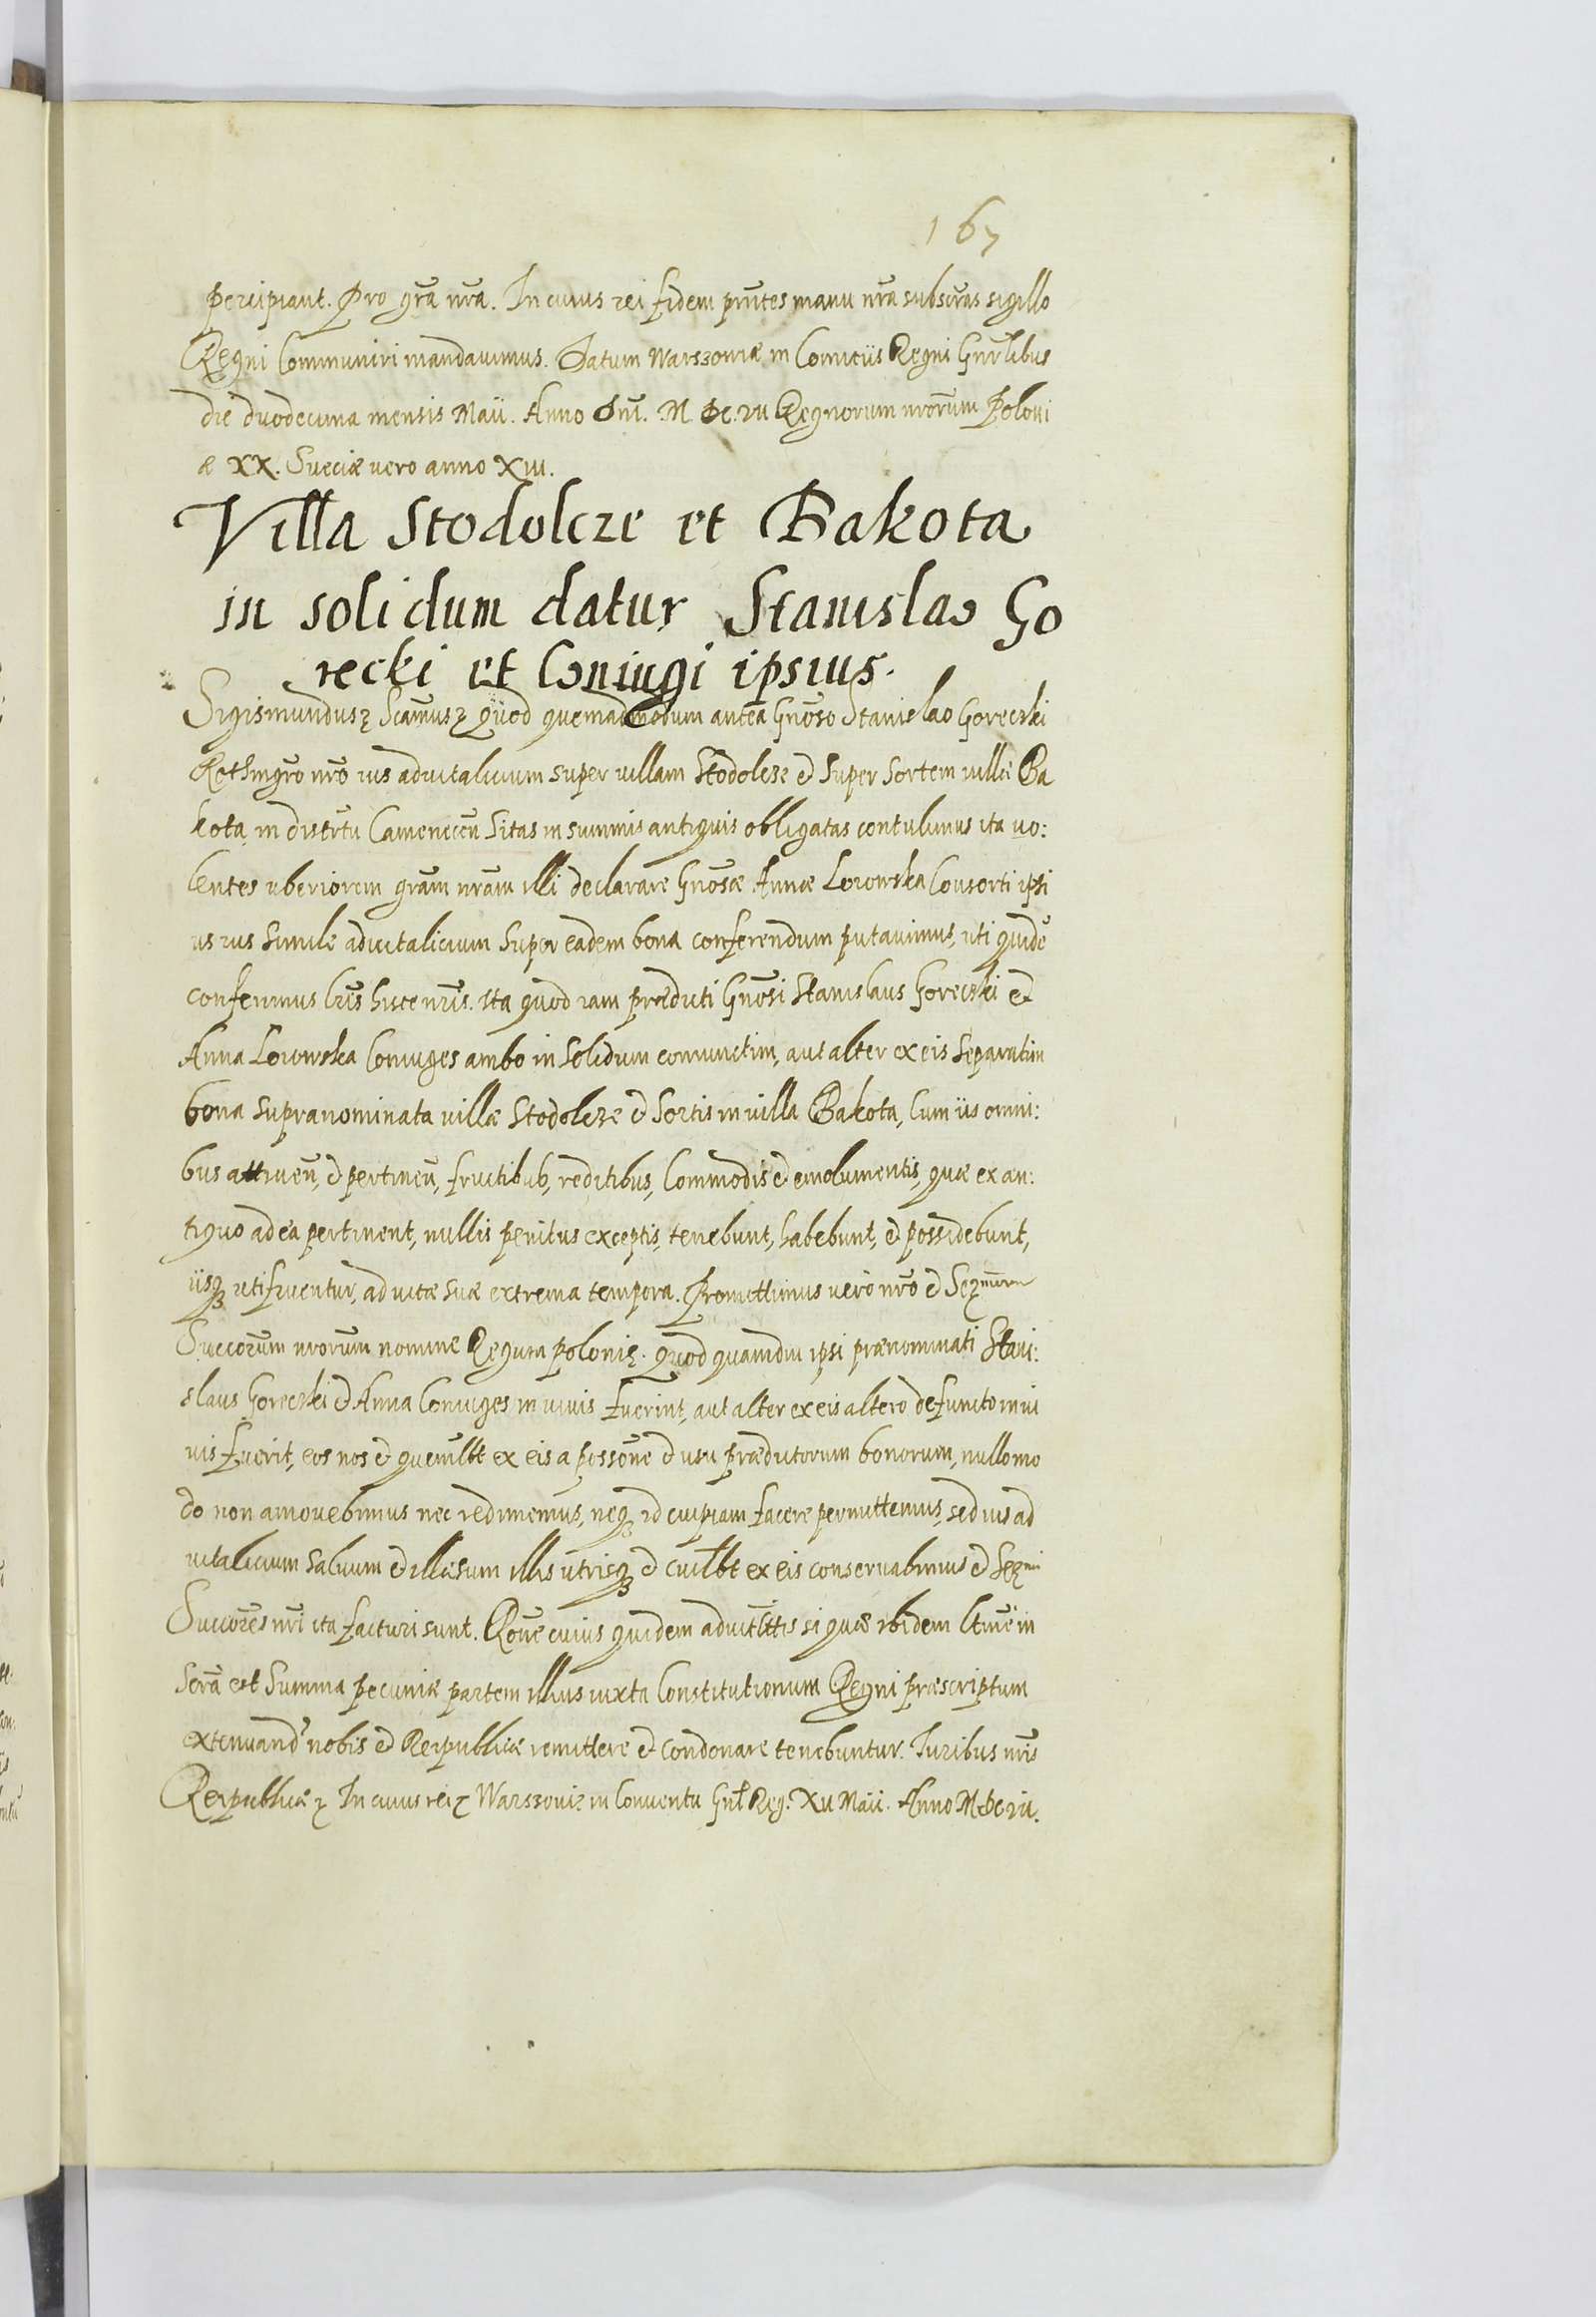 167
percipiant. Pro gr̃a nr̃a. In cuius rei fidem pñtes manu nr̃a subscr̃as sigillo
Regni Communiri mandauimus. Datum Warszouiæ in Comitiis Regni Gnr̃libus
die duodecima mensis Maii. Anno Dñi. M. DC. VII Regnorum nr̃orum Poloni
æ XX. Sueciæ vero anno XIII.
Villa Stodolcze et Bakota
in solidum datur Stanislao Go
recki et Coniugi ipsius.
Sigismundus ꝛ Scamus ꝛ Quod quemadmodum antea Gnõso Stanislao Goreczki
Rothmgr̃o nr̃o ius aduitalicium super villam Stodolcze et super Sortem villæ Ba
kota, in districtu Camenecen̄ Sitas in summis antiquis obligatas contulimus ita uo:
lentes uberiorem gr̃am nr̃am illi declarare Gnõsæ Annæ Lorowska Consorti ipsi
us ius simile aduitalicium super eadem bona conferendum putauimus, uti quidẽ
conferimus lr̃is hisce nr̃is. Ita quod iam prædicti Gnõsi Stanislaus Goreczki et
Anna Lorowska Coniuges ambo in solidum coniunctim, aut alter ex eis separatim
bona supranominata villæ Stodolcze et Sortis in villa Bakota, Cum iis omni:
bus attinen̄, et pertinen̄, fructibus, reditibus, Commodis et emolumentis, quæ ex an:
tiquo ad ea pertinent, nullis penitus exceptis, tenebunt, habebunt, et possidebunt,
iisq; utifruentur, ad uitæ suæ extrema tempora. Promittimus vero nr̃o et Seꝛ̃morum
Succorum nr̃orum nomine Regum Polonię. Quod quamdiu ipsi prænominati Stani:
slaus Goreczki et Anna Coniuges in uiuis fuerint, aut alter ex eis altero defuncto in ui
uis fuerit, eos nos et quemlbt ex eis a possõne et usu prædictorum bonorum, nullo mo
do non amouebimus nec redimemus, neq; id cuipiam facere permittemus, sed ius ad
uitalicium saluum et illæsum illis utrisq; et cuilbt ex eis conseruabimus et Seꝛ̃mi
Succores nr̃i ita facturi sunt. Rõne cuius quidem aduit̃ltis si quæ ibidem ltm̃e in
scr̃a est Summa pecuniæ partem illius iuxta Constitutionum Regni præscriptum
extenuand' nobis et Reipublicæ remittere et condonare tenebuntur. Iuribus nr̃is
Reipublicæ ꝛ In cuius rei ꝛ Warszouię in Conuentu Gnł Reg. XV Maii. Anno MDCVII.